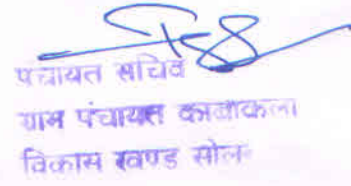 पंचायत सचिव
ग्राम पंचायत काबाकला
विकास खण्ड सोलन